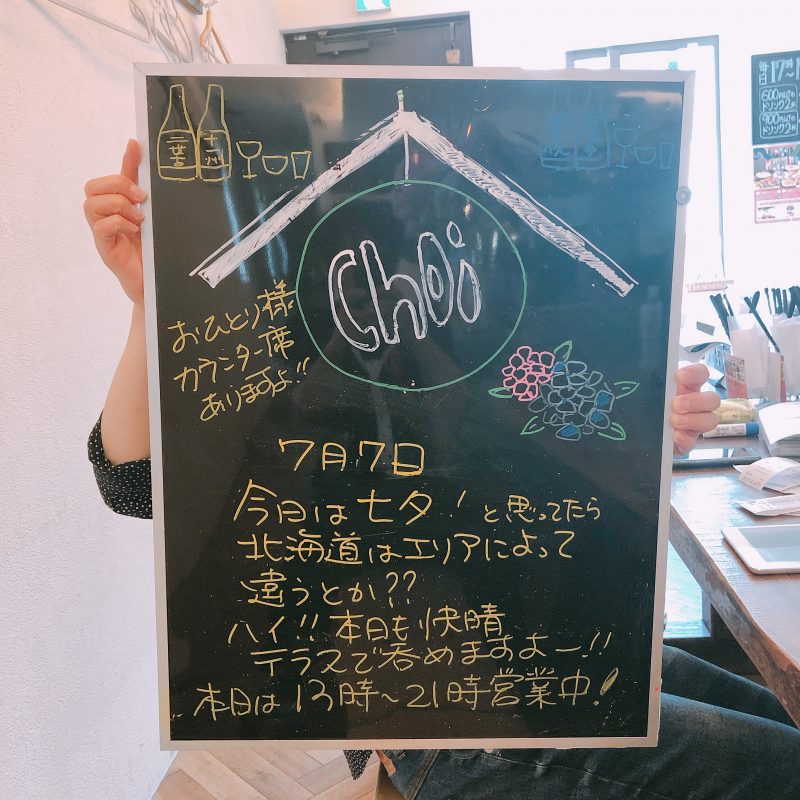 Choi
おひとり様
カウンター席
ありますよ!!
7月7日
今日は七夕!と思ってたら
北海道はエリアによって
違うとか??
ハイ!!本日も快晴
テラスで呑めますよー!!
本日は13時〜21時営業中!
毎日17時
600円
ドリンク2杯
900円
ドリンク2杯